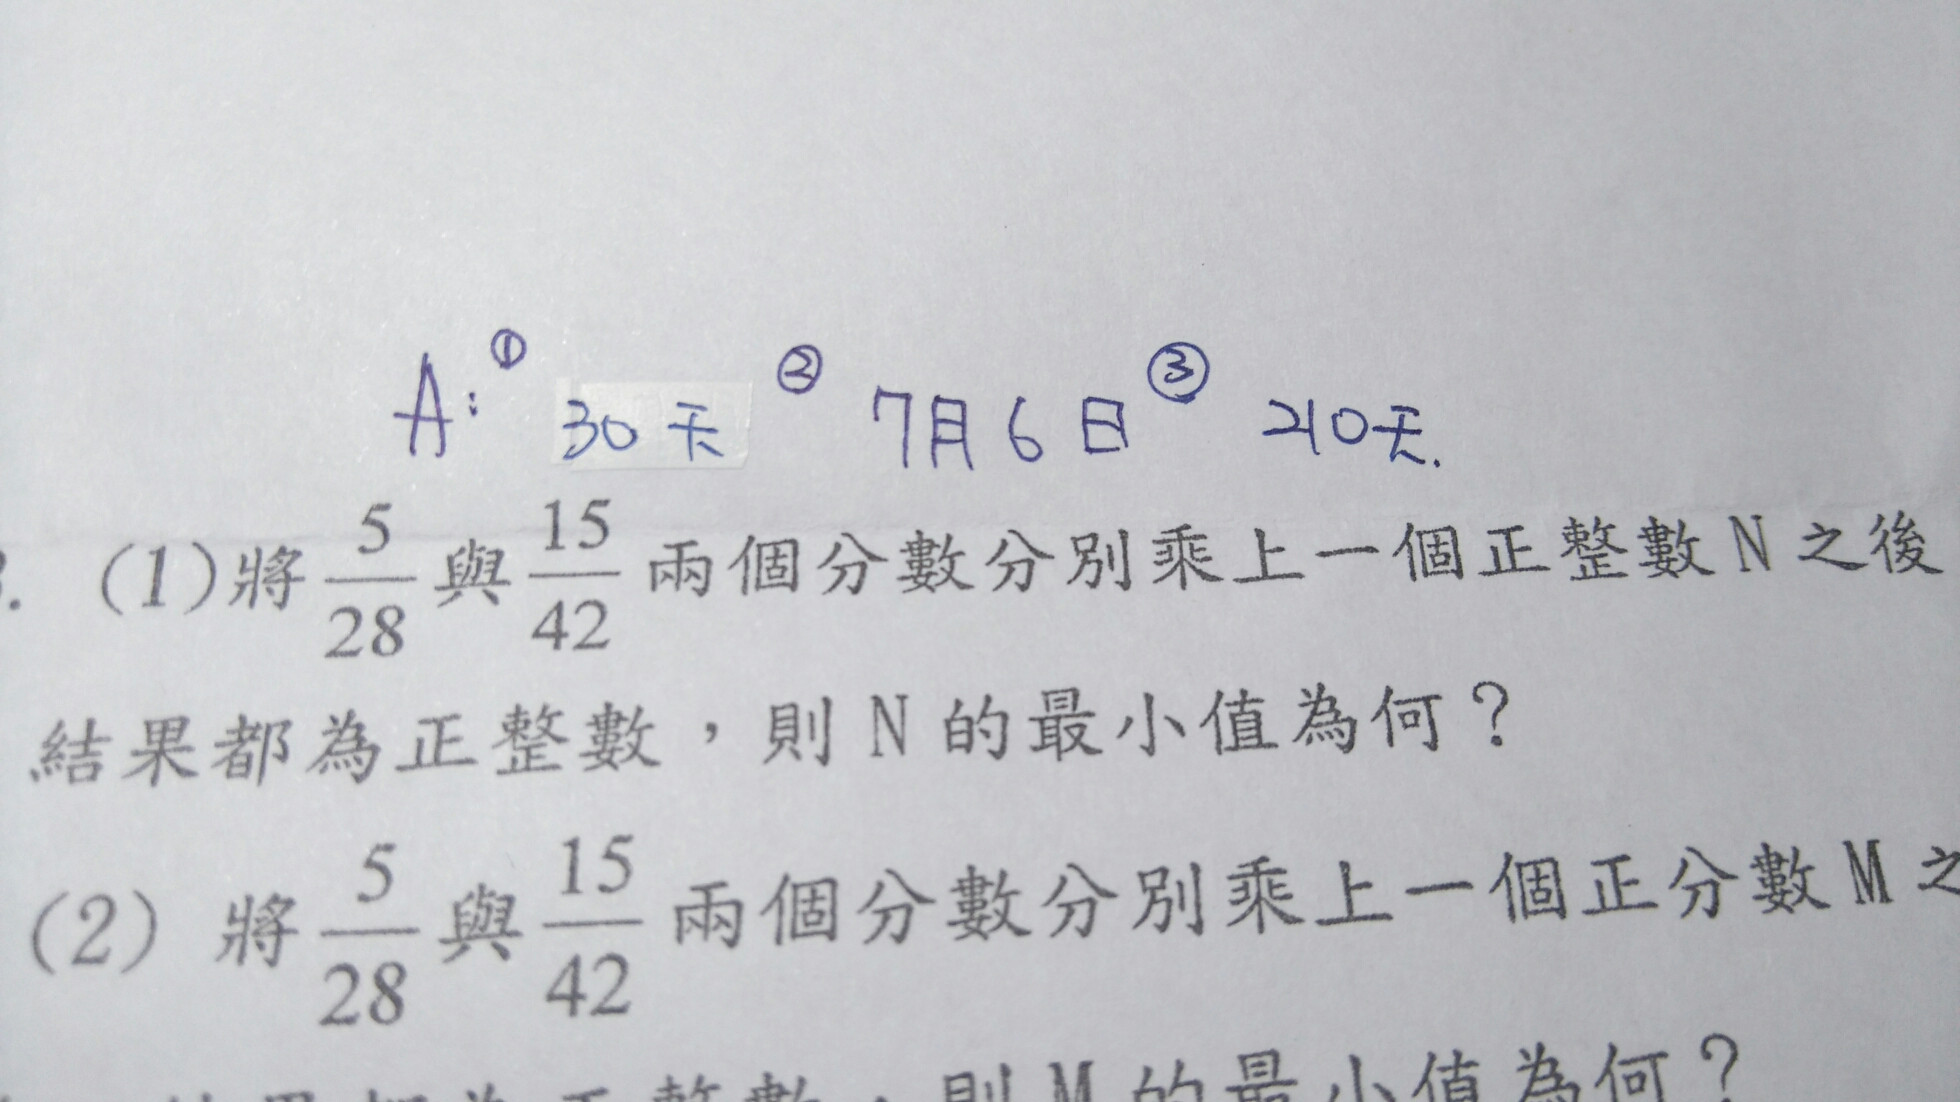 A: ① 30天 ② 7月6日 ③ 210天.
. (1)將 5/28 與 15/42 兩個分數分別乘上一個正整數N之後
結果都為正整數，則 N 的最小值為何？
(2) 將 5/28 與 15/42 兩個分數分別乘上一個正分數M之
結果都為正整數，則 M 的最小值為何？